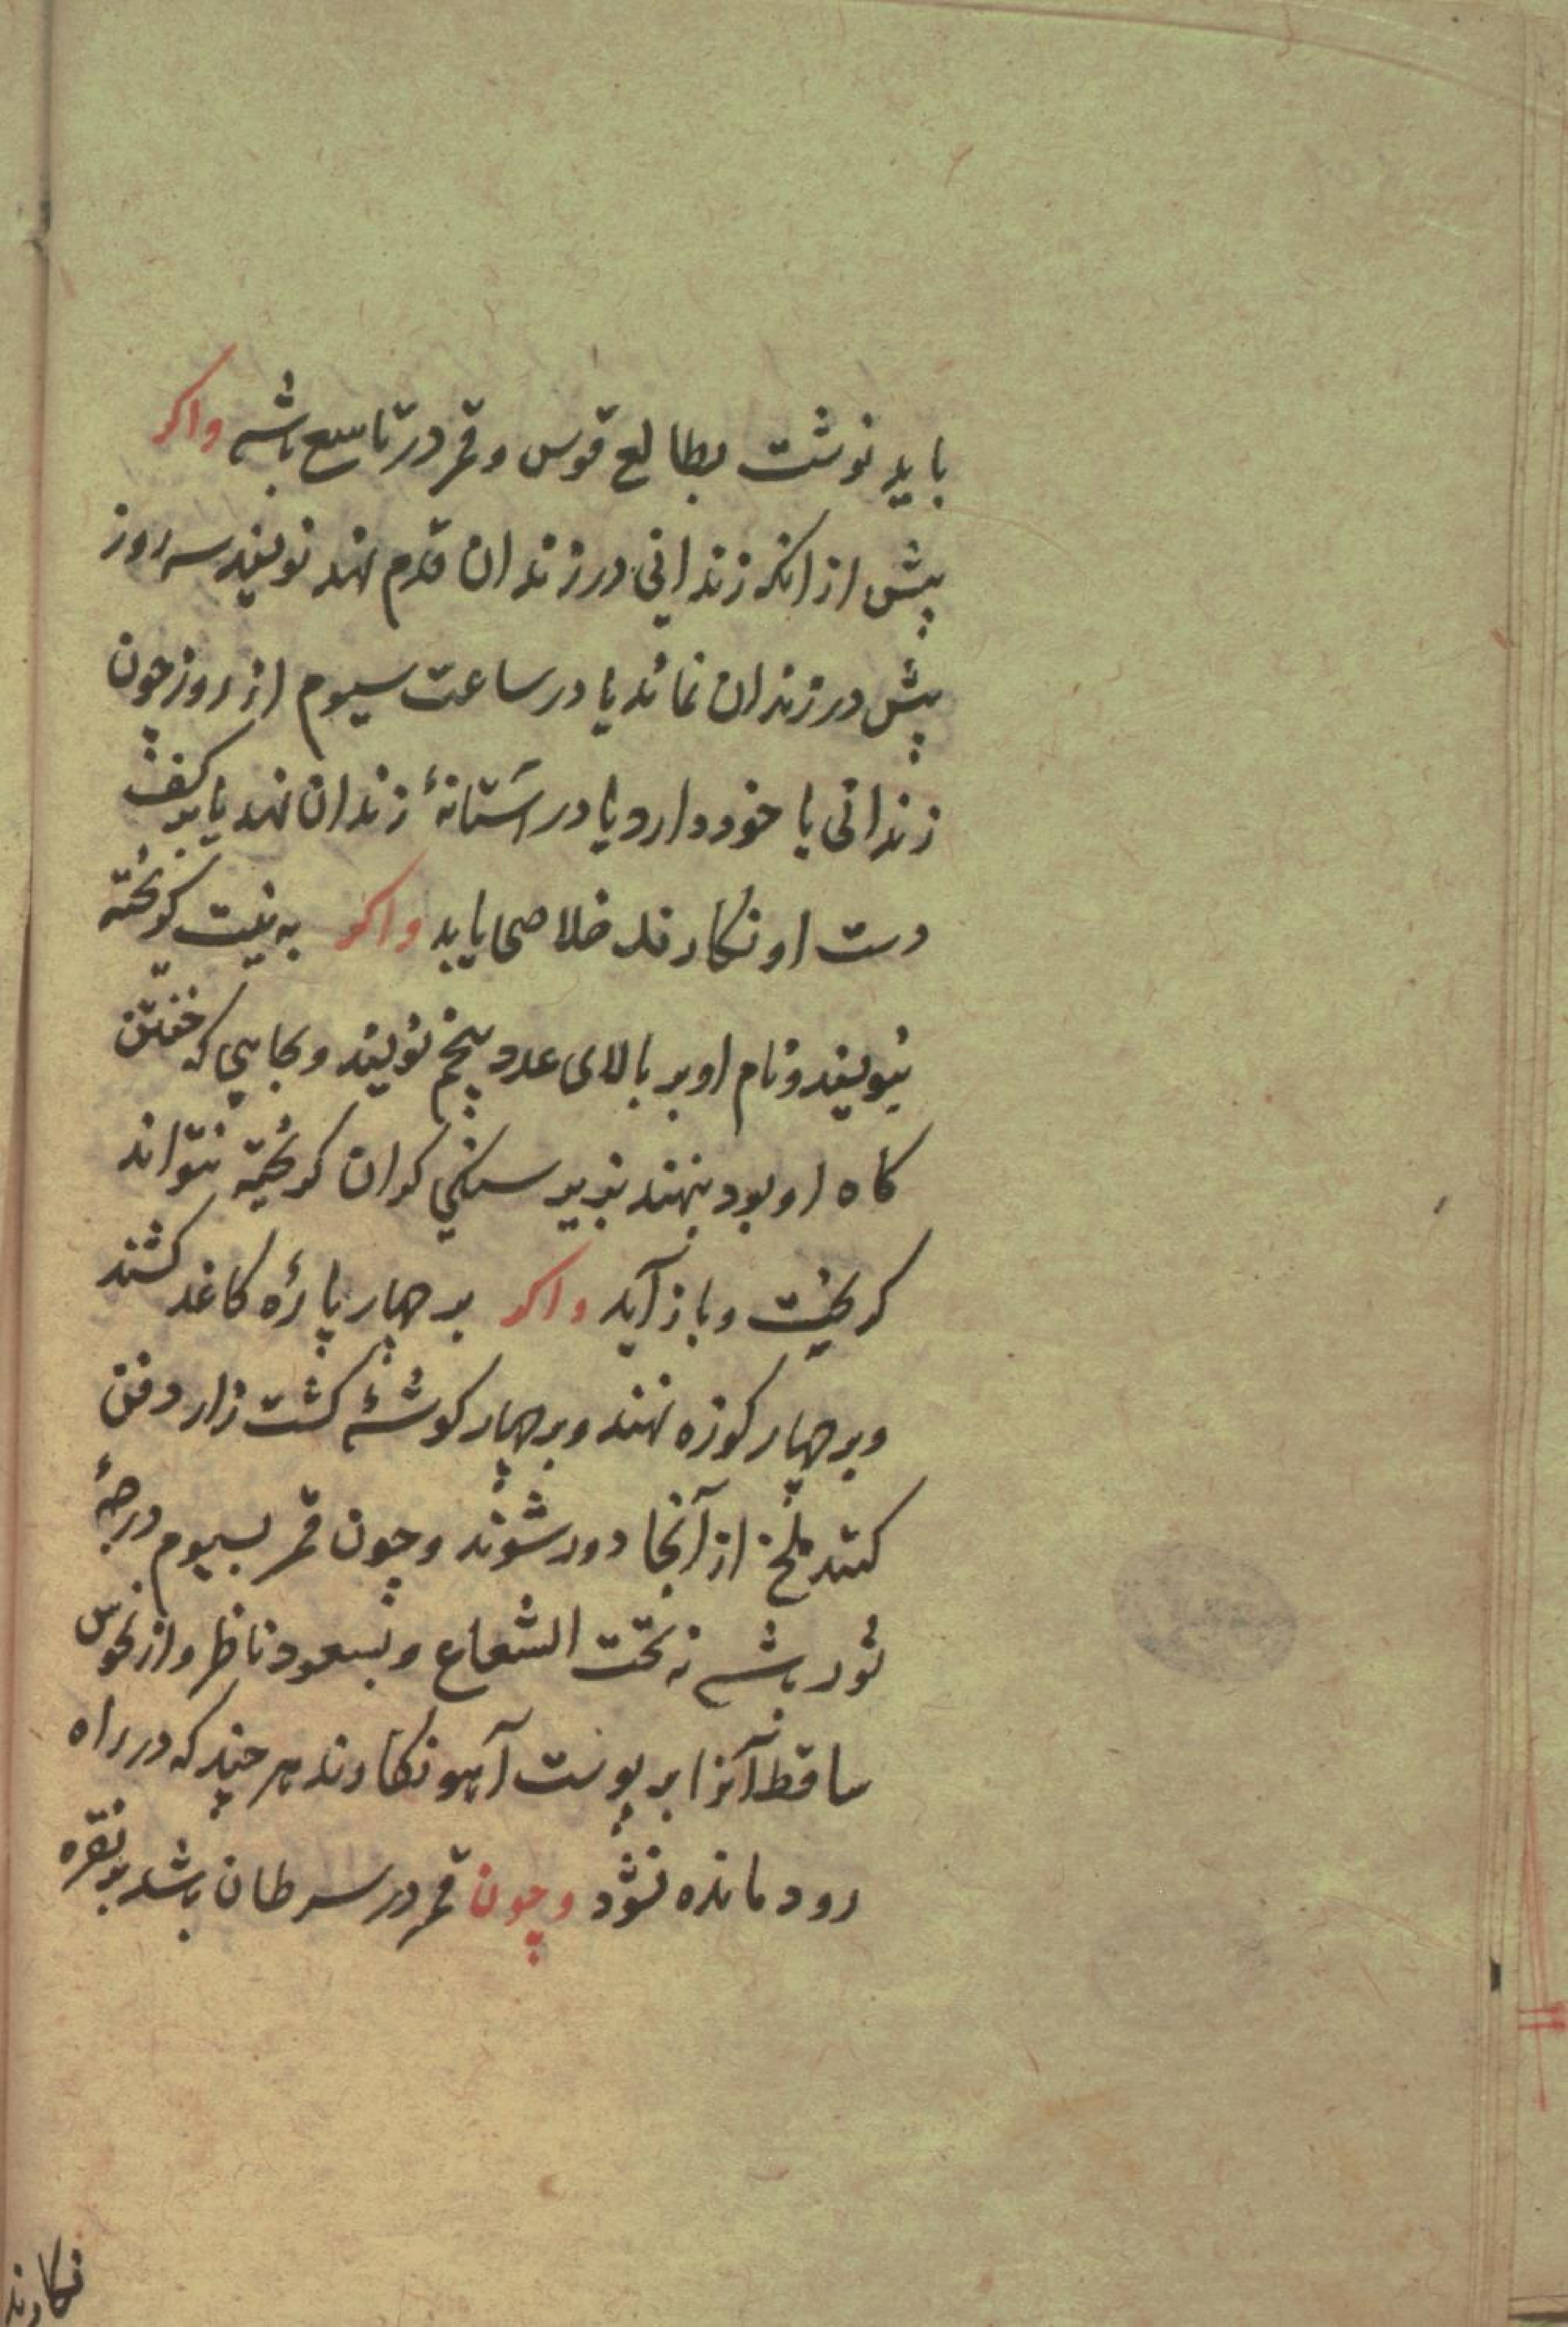 باید نوشت بطالع قوس و قمر در تاسع باشد واکر
پیش از انکه زندانی در زندان قدم نهد نویسند سه روز
پیش در زندان نماند یا در ساعت سیوم از روز چون
زندانی با خود دارد یا در آستانهٔ زندان نهد یا بر کف
دست او نکارند خلاصی یابد واکر به نیت کریخته
بنویسند و نام او بر بالای عدد پنجم نویسند و بجایی که خفتن
کاه او بود بنهند بزیر سنکی کران کریخته نتواند
کریخت و باز آید واکر بر چهار پارهٔ کاغذ کشند
و بر چهار کوزه نهند و بر چهار کوشهٔ کشت زار دفن
کنند ملخ از آنجا دور شوند و چون قمر بسیوم درجهٔ
ثور باشد نه تحت الشعاع و بسعود ناظر و از نحوس
ساقط آنرا بر پوست آهو نکارند هر چند که در راه
رود مانده نشود و چون قمر در سرطان باشد بر نقره
نکارند